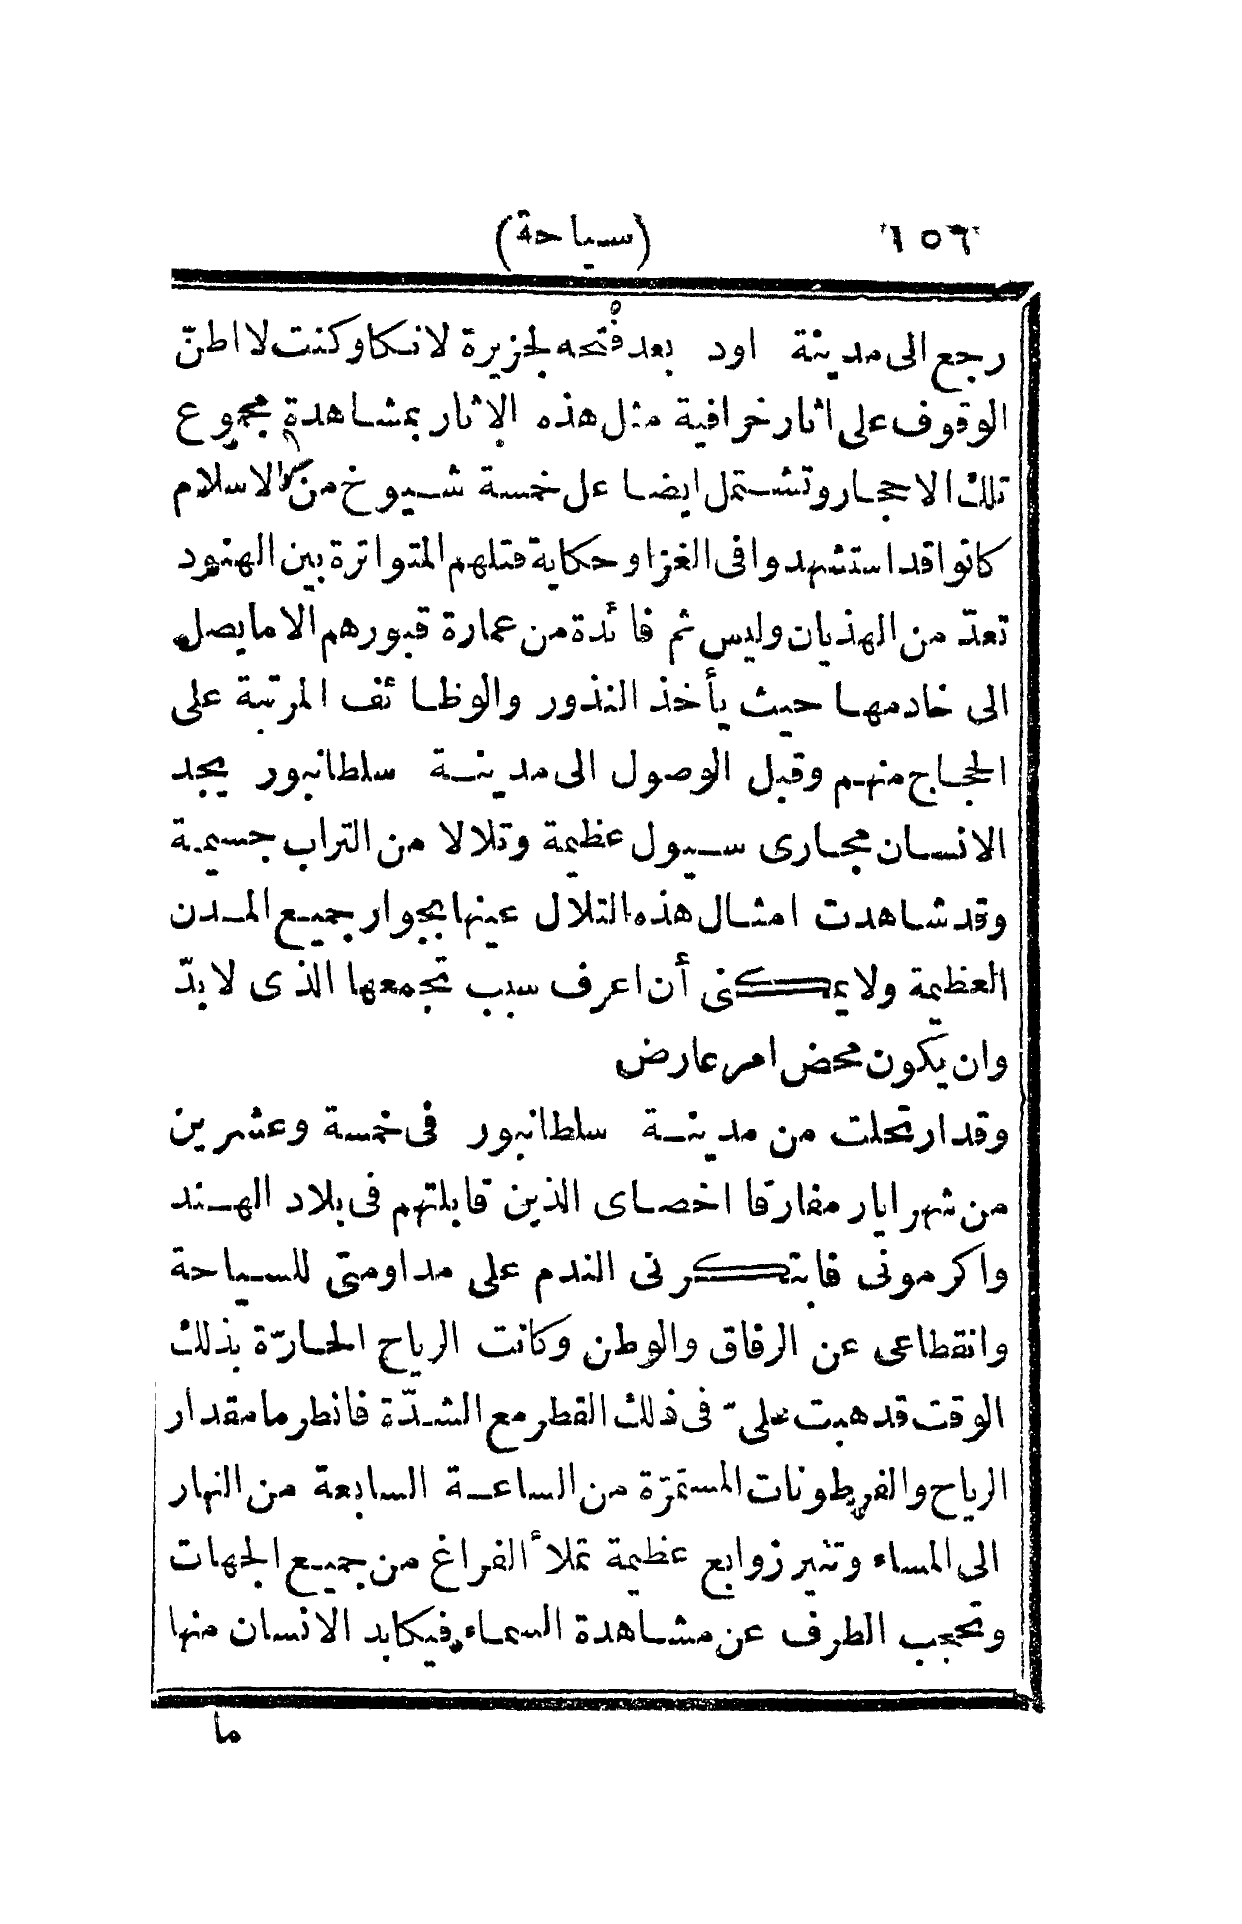 ١٥٦ (سياحة)
رجع الى مدينة اود بعد فتحه لجزيرة لانكا وكنت لا اظنّ
الوقوف على اثار خرافية مثل هذه الاثار بمشاهدة مجموع
تلك الاحجار وتشتمل ايضا على خمسة شيوخ من الاسلام
كانوا قد استشهدوا فى الغزا وحكاية قتلهم المتواترة بين الهنود
تعدّ من الهذيان وليس ثم فائدة من عمارة قبورهم الا ما يصل
الى خادمها حيث يأخذ النذور والوظائف المرتبة على
الحجاج منهم وقبل الوصول الى مدينة سلطانبور يجد
الانسان مجارى سيول عظيمة وتلالا من التراب جسيمة
وقد شاهدت امثال هذه التلال عينها بجوار جميع المدن
العظيمة ولا يمكننى أن اعرف سبب تجمعها الذى لا بدّ
وان يكون محض امر عارض
وقد ارتحلت من مدينة سلطانبور فى خمسة وعشرين
من شهر ايار مفارقا اخصاى الذين قابلتهم فى بلاد الهند
واكرمونى فابتكرنى الندم على مداومتى للسياحة
وانقطاعى عن الرفاق والوطن وكانت الرياح الحارّة بذلك
الوقت قد هبت علىّ فى ذلك القطر مع الشدّة فانظر ما مقدار
الرياح والفرطونات المستمرّة من الساعة السابعة من النهار
الى المساء وتثير زوابع عظيمة تملأ الفراغ من جميع الجهات
وتحجب الطرف عن مشاهدة السماء فيكابد الانسان منها
ما